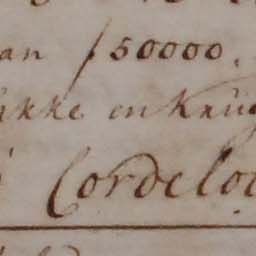 an ƒ50000.
kke en Krüg
Cordelo